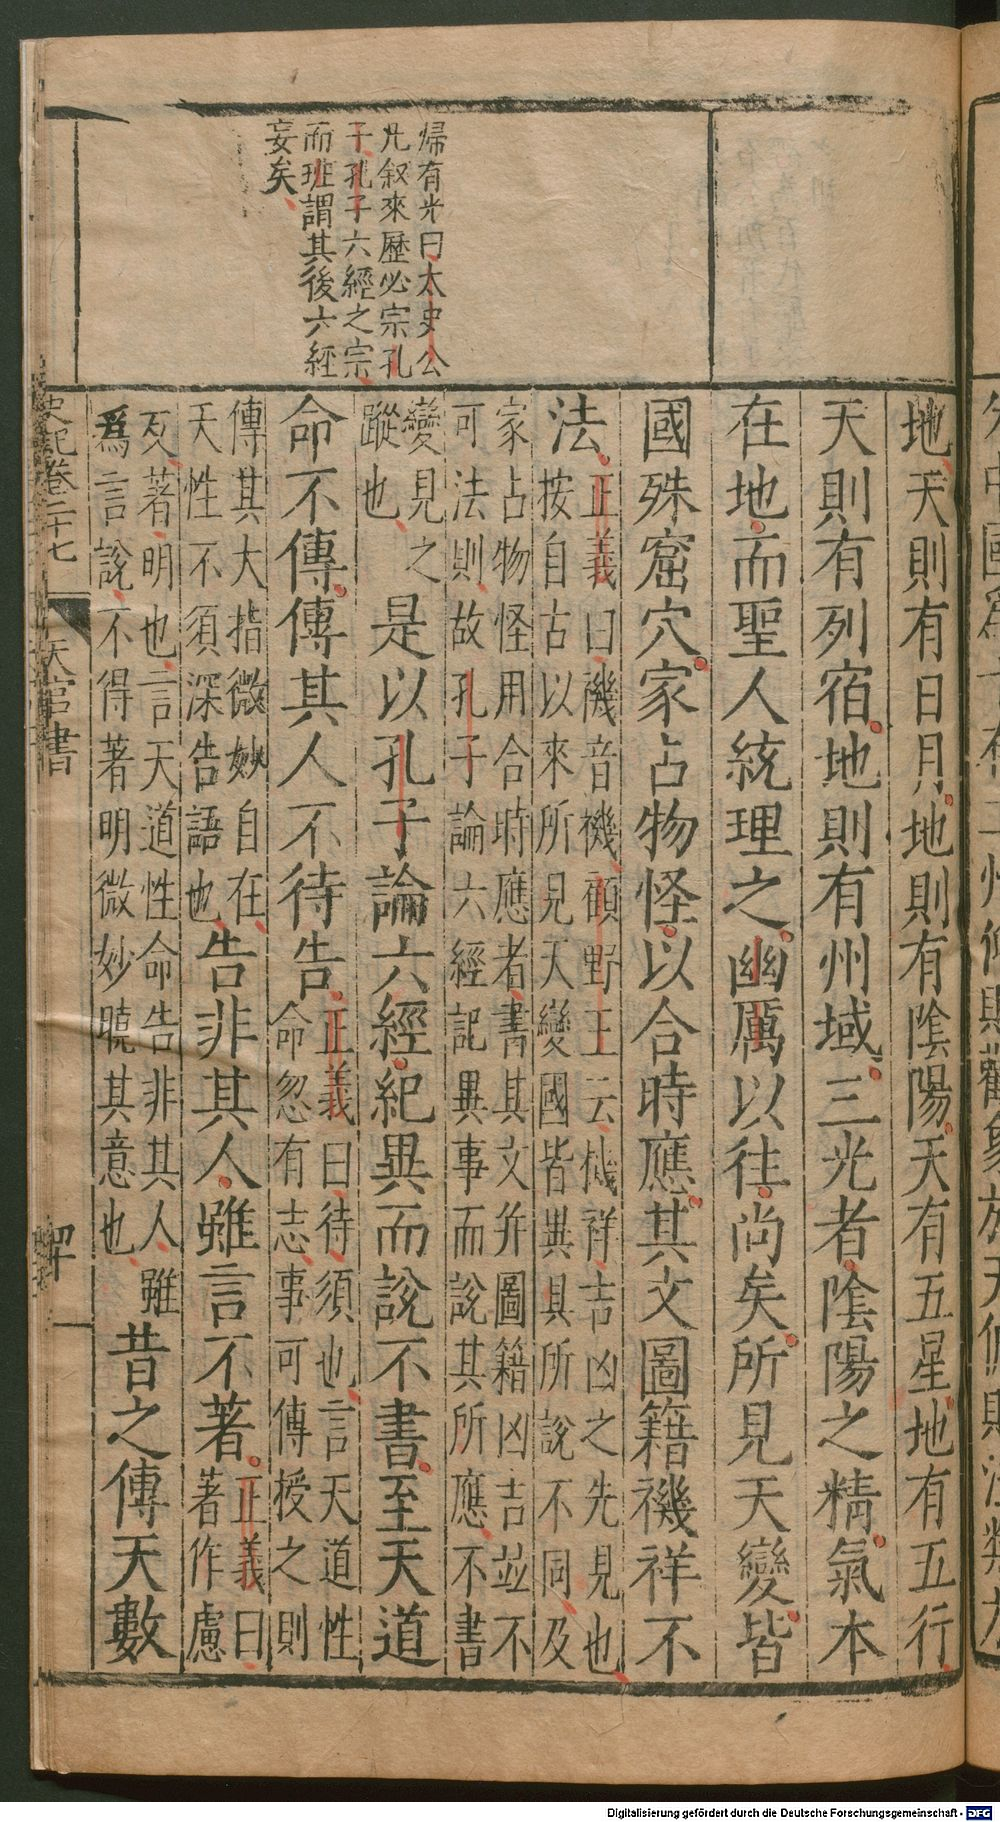 帰有光曰太史公
凡叙來歷必宗孔
子孔子六經之宗
而班謂其後六經
妄矣
地天則有日月地則有陰陽天有五星地有五行
天則有列宿地則有州域三光者陰陽之精氣本
在地而聖人統理之幽厲以往尚矣所見天變皆
國殊窟穴家占物怪以合時應其文圖籍禨祥不
法正義曰禨音機顧野王云禨祥吉凶之先見也
按自古以來所見天變國皆異具所說不同及
家占物怪用合時應者書其文并圖籍凶吉並不
可法則故孔子論六經記異事而說其所應不書
變見之
蹤也
是以孔子論六經紀異而說不書至天道
命不傳傳其人不待告正義曰待須也言天道性
命忽有志事可傳授之則
傳其大指微妙自在
天性不須深告語也
告非其人雖言不著正義曰
著作慮
反著明也言天道性命告非其人雖
爲言說不得著明微妙曉其意也
昔之傳天數
史記卷二十七 天官書
Digitalisierung gefördert durch die Deutsche Forschungsgemeinschaft - DFG